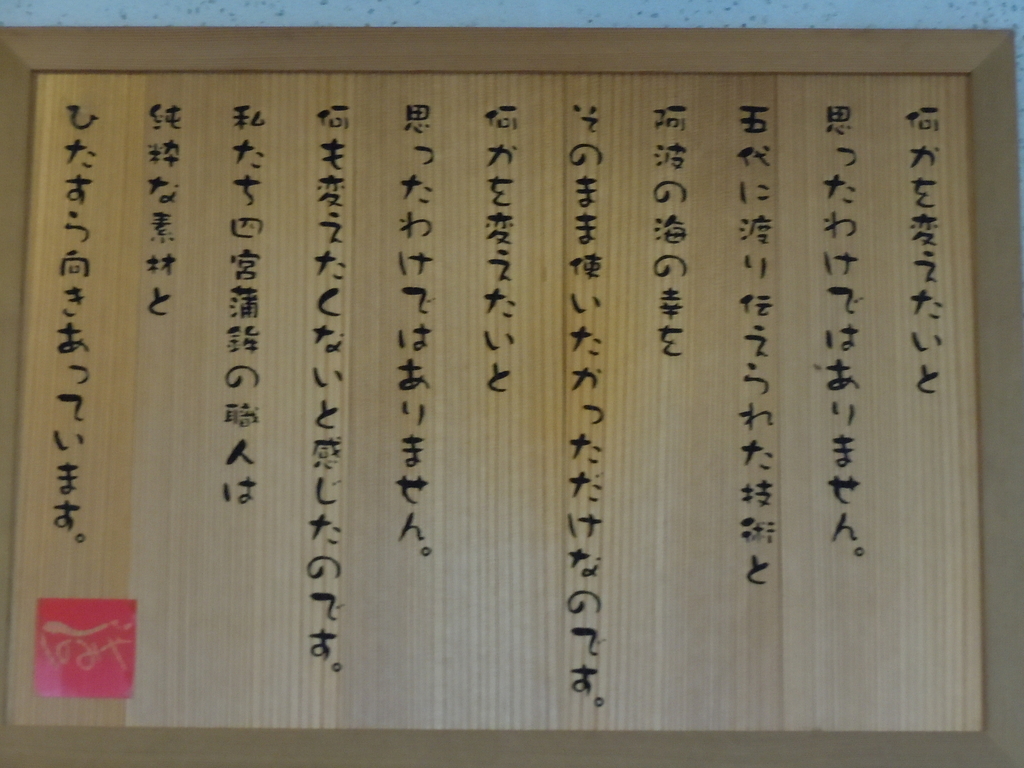 何かを変えたいと
思ったわけではありません。
五代に渡り伝えられた技術と
阿波の海の幸を
そのまま使いたかっただけなのです。
何かを変えたいと
思ったわけではありません。
何も変えたくないと感じたのです。
私たち四宮蒲鉾の職人は
純粋な素材と
ひたすら向きあっています。